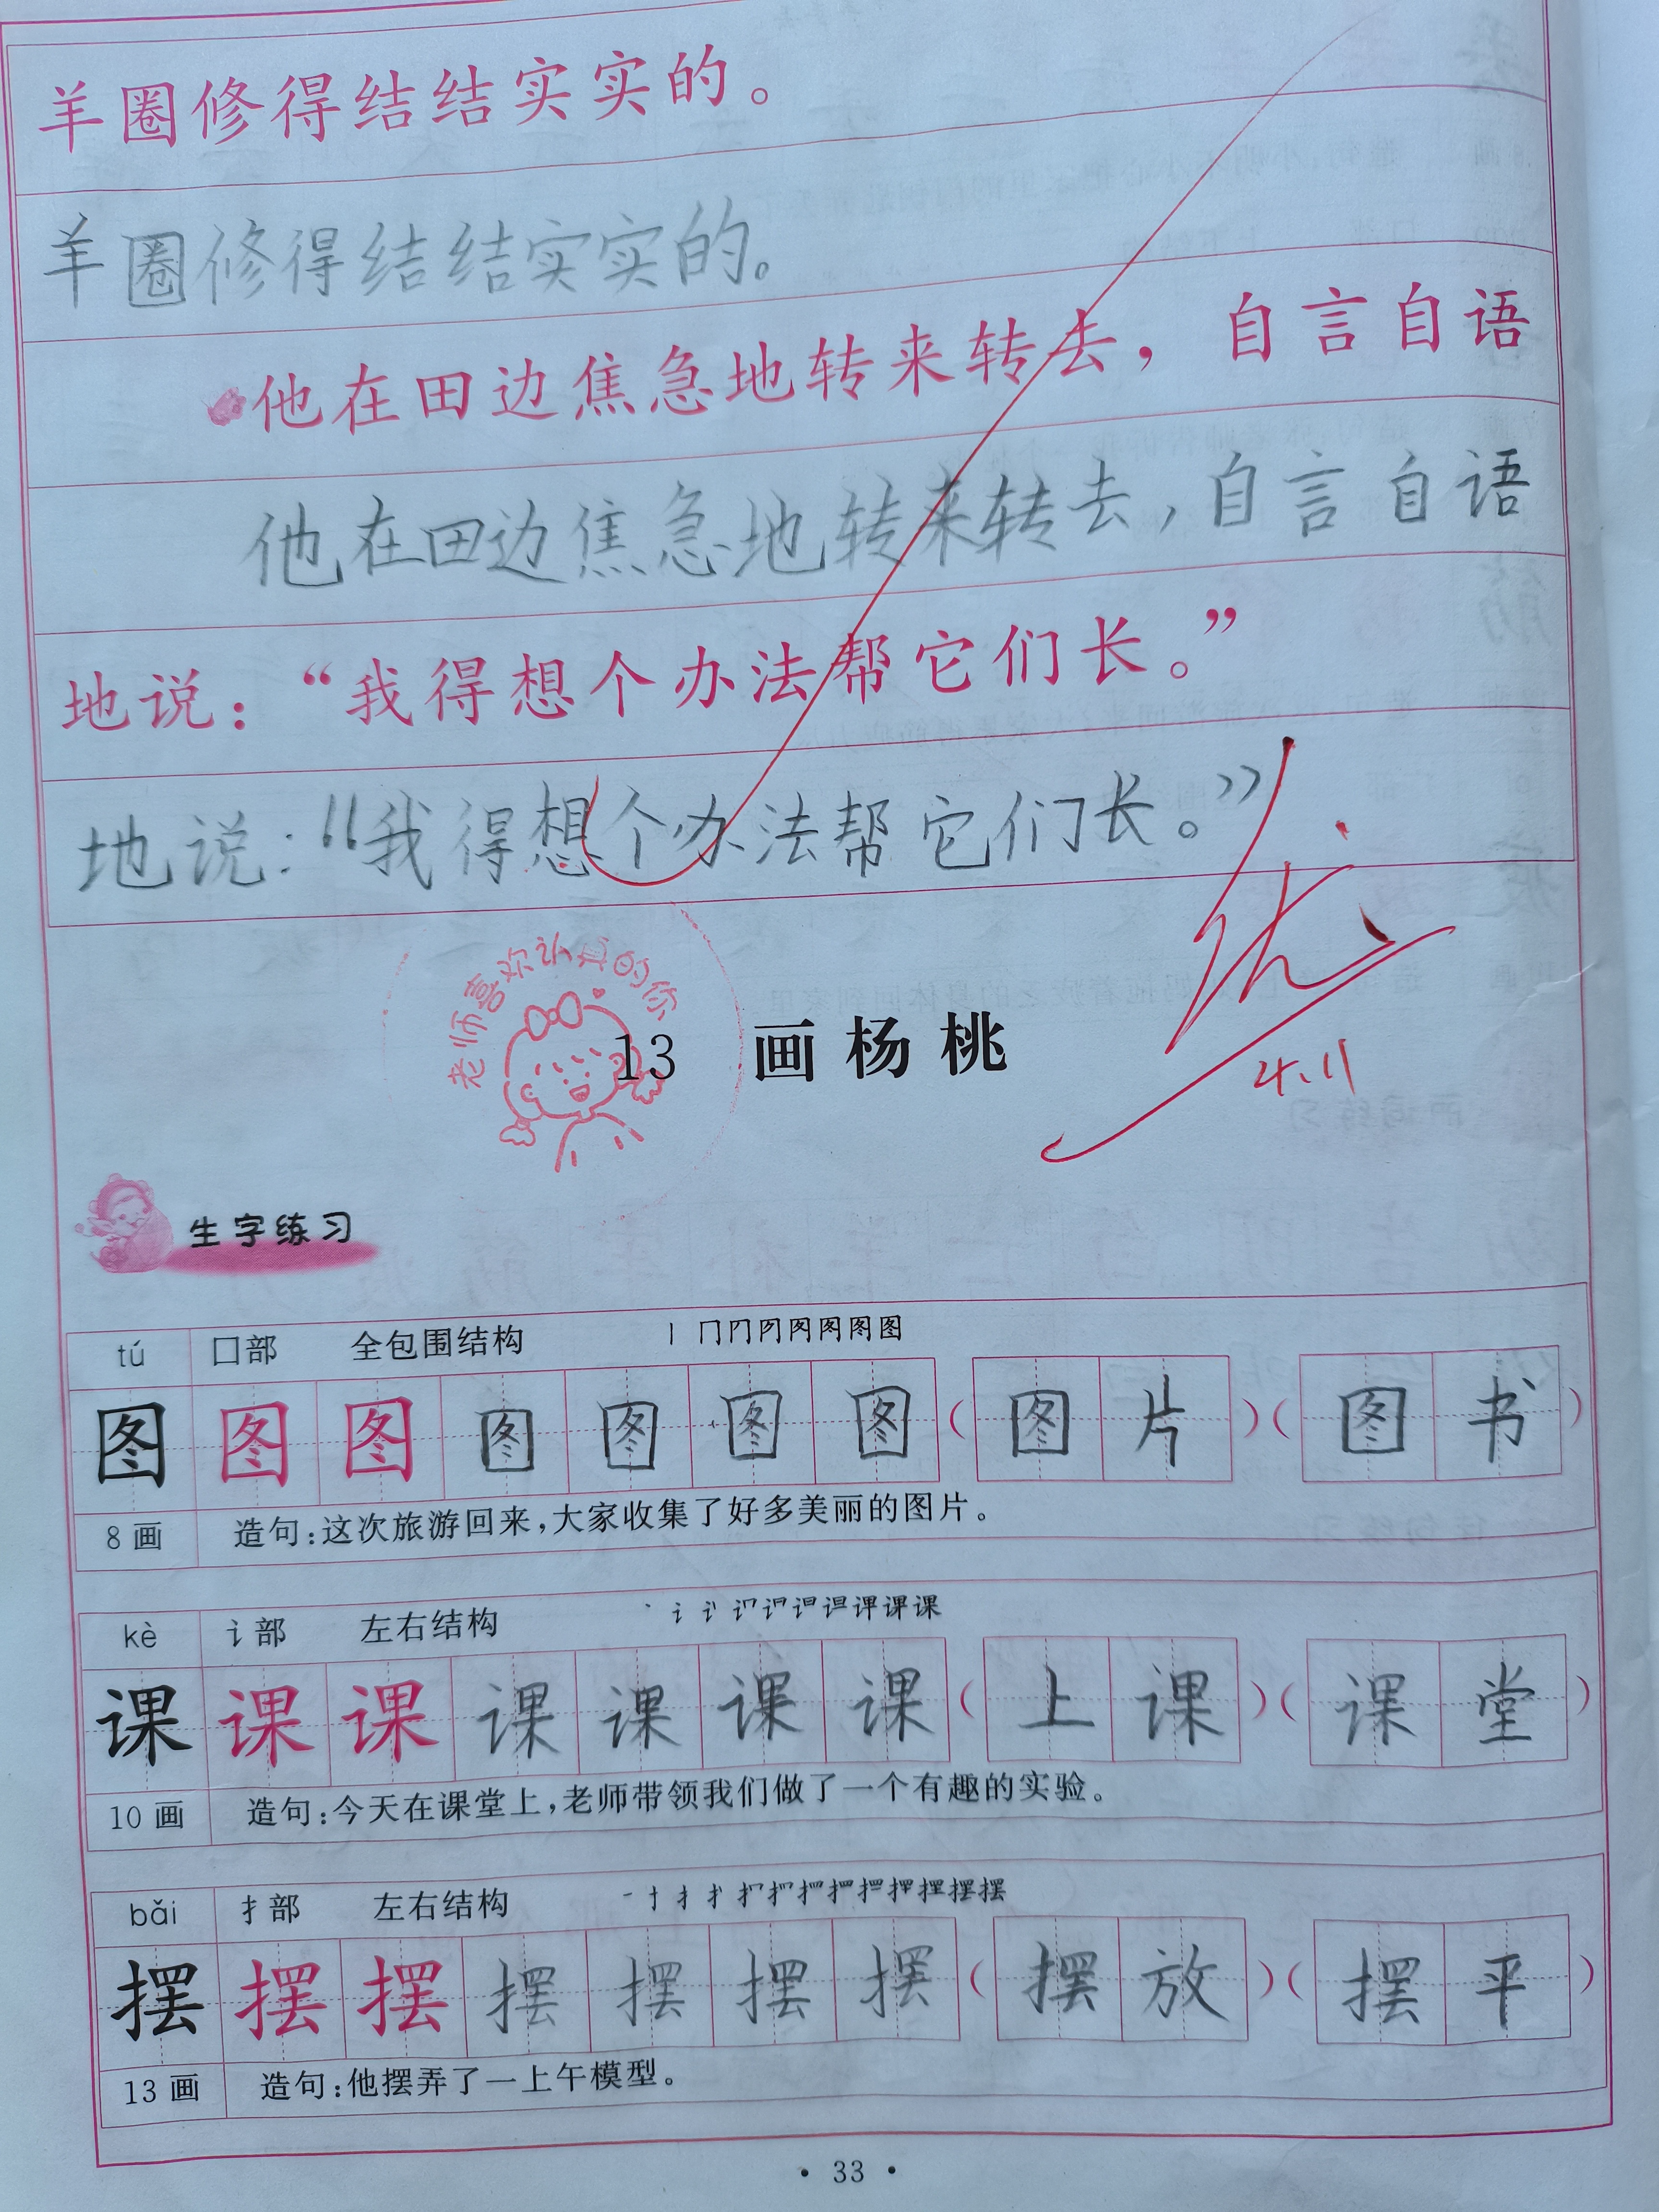 羊圈修得结结实实的。
羊圈修得结结实实的。
他在田边焦急地转来转去，自言自语
他在田边焦急地转来转去，自言自语
地说：“我得想个办法帮它们长。”
地说：“我得想个办法帮它们长。”
优
4.11
老师喜欢认真的你
13 画杨桃
生字练习
tú 囗部 全包围结构 丨 冂
图 图 图 图 图 图 图 （图片）（图书）
8画 造句：这次旅游回来，大家收集了好多美丽的图片。
kè 讠部 左右结构
课 课 课 课 课 课 课 （上课）（课堂）
10画 造句：今天在课堂上，老师带领我们做了一个有趣的实验。
bǎi 扌部 左右结构
摆 摆 摆 摆 摆 摆 摆 （摆放）（摆平）
13画 造句：他摆弄了一上午模型。
· 33 ·